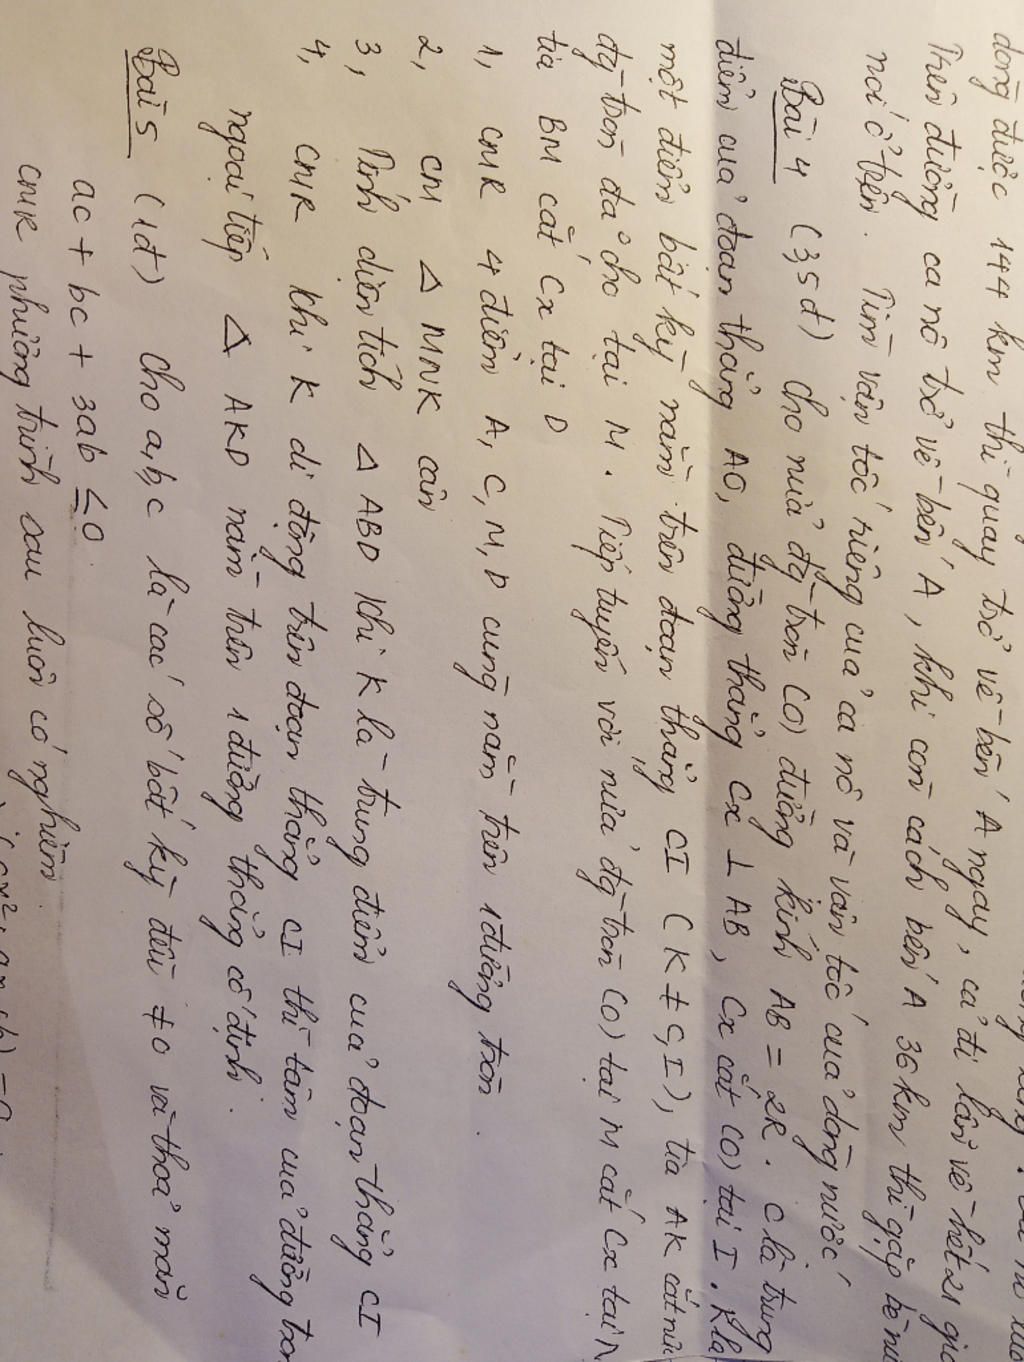 dòng được 144 km thì quay trở về bến A ngay, cả đi lẫn về hết 21 giờ
Trên đường ca nô trở về bến A, khi còn cách bến A 36km thì gặp bè nứa
nói ở trên. Tìm vận tốc riêng của ca nô và vận tốc của dòng nước
Bài 4 (3,5đ) Cho nửa đg tròn (O) đường kính AB = 2R. C là trung
điểm của đoạn thẳng AO, đường thẳng Cx ⊥ AB, Cx cắt (O) tại I. K là
một điểm bất kỳ nằm trên đoạn thẳng CI (K ≠ C, I), tia AK cắt nửa
đg tròn đã cho tại M. Tiếp tuyến với nửa đg tròn (O) tại M cắt Cx tại N
tia BM cắt Cx tại D
1, CMR 4 điểm A, C, M, D cùng nằm trên 1 đường tròn.
2, CM Δ MNK cân
3, Tính diện tích Δ ABD khi K là trung điểm của đoạn thẳng CI
4, CMR khi K di động trên đoạn thẳng CI thì tâm của đường tròn
ngoại tiếp Δ AKD nằm trên 1 đường thẳng cố định.
Bài 5 (1đ) Cho a, b, c là các số bất kỳ đều ≠ 0 và thoả mãn
ac + bc + 3ab ≤ 0
CMR phương trình sau luôn có nghiệm.